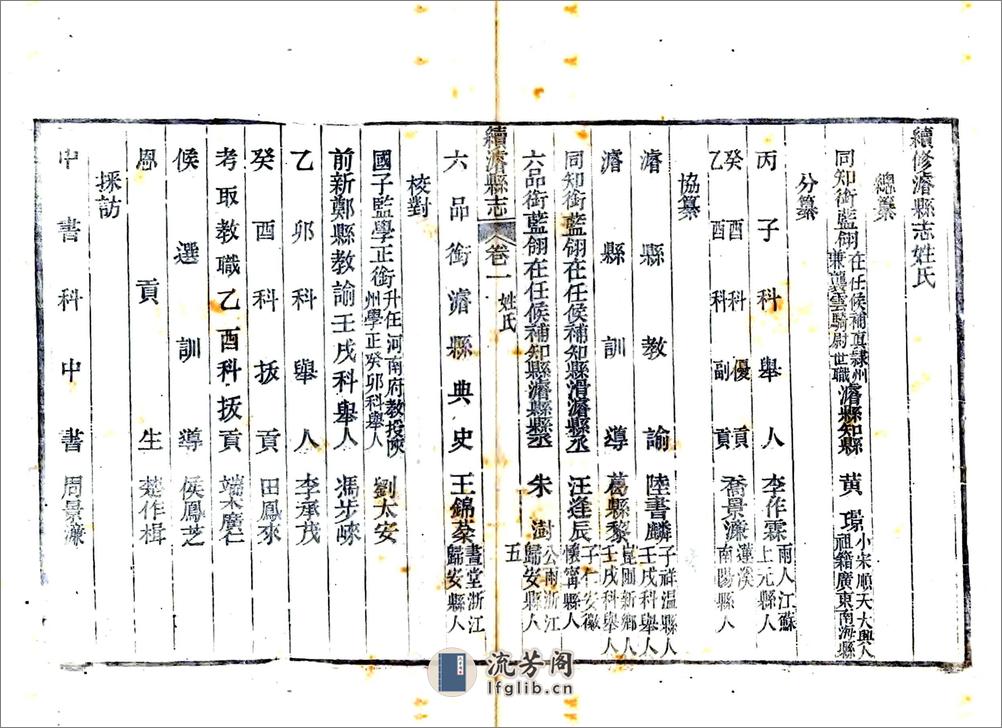 續修濬縣志姓氏
總纂
同知銜藍翎在任候補直隸州兼襲雲騎尉世職濬縣知縣 黃璟 小宋順天大興人祖籍廣東南海縣
分纂
丙子科舉人 李作霖 雨人江蘇上元縣人
癸酉科優貢乙酉科副貢 喬景濂 蓮溪南陽縣人
協纂
濬縣教諭 陸書麟 子祥溫縣人壬戌科舉人
濬縣訓導 葛縣黎 崑圃新鄉人壬戌科舉人
同知銜藍翎在任候補知縣滑濬縣丞 汪逢辰 子仁安徽懷寧縣人
六品銜藍翎在任候補知縣濬縣縣丞 朱澍 公雨浙江歸安縣人
續濬縣志 卷一 姓氏 五
六品銜濬縣典史 王錦荼 晝堂浙江歸安縣人
校對
國子監學正銜升任河南府教授陝州學正癸卯科舉人 劉太安
前新鄭縣教諭壬戌科舉人 馮步崍
乙卯科舉人 李承茂
癸酉科拔貢 田鳳來
考取教職乙酉科拔貢 端木廣仁
候選訓導 侯鳳芝
恩貢生 楚作楫
採訪
中書科中書 周景濂
流芳阁
lfglib.cn